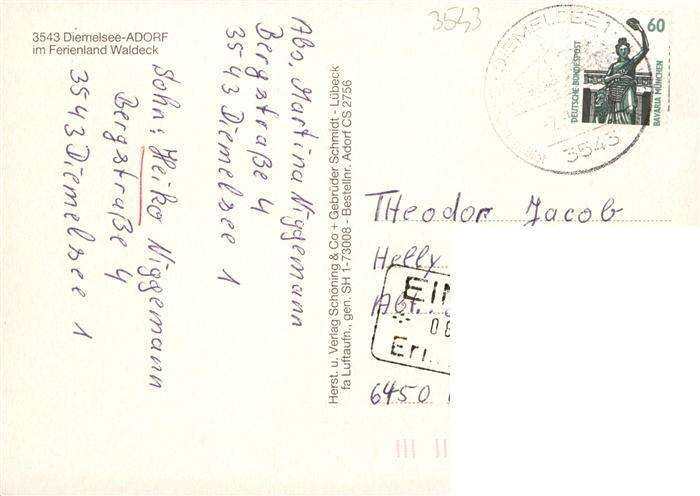 3543 Diemelsee-ADORF
im Ferienland Waldeck
Abs. Martina Niggemann
Bergstraße 4
3543 Diemelsee 1
Sohn: Heiko Niggemann
Bergstraße 4
3543 Diemelsee 1
Herst. u. Verlag Schöning & Co + Gebrüder Schmidt - Lübeck
fa Luftaufn., gen. SH 1-73008 - Bestellnr. Adorf CS 2756
3543
DIEMELSEE 1
3543
60
DEUTSCHE BUNDESPOST
BAVARIA MÜNCHEN
THeodor Jacob
Helly
Abt.
6450